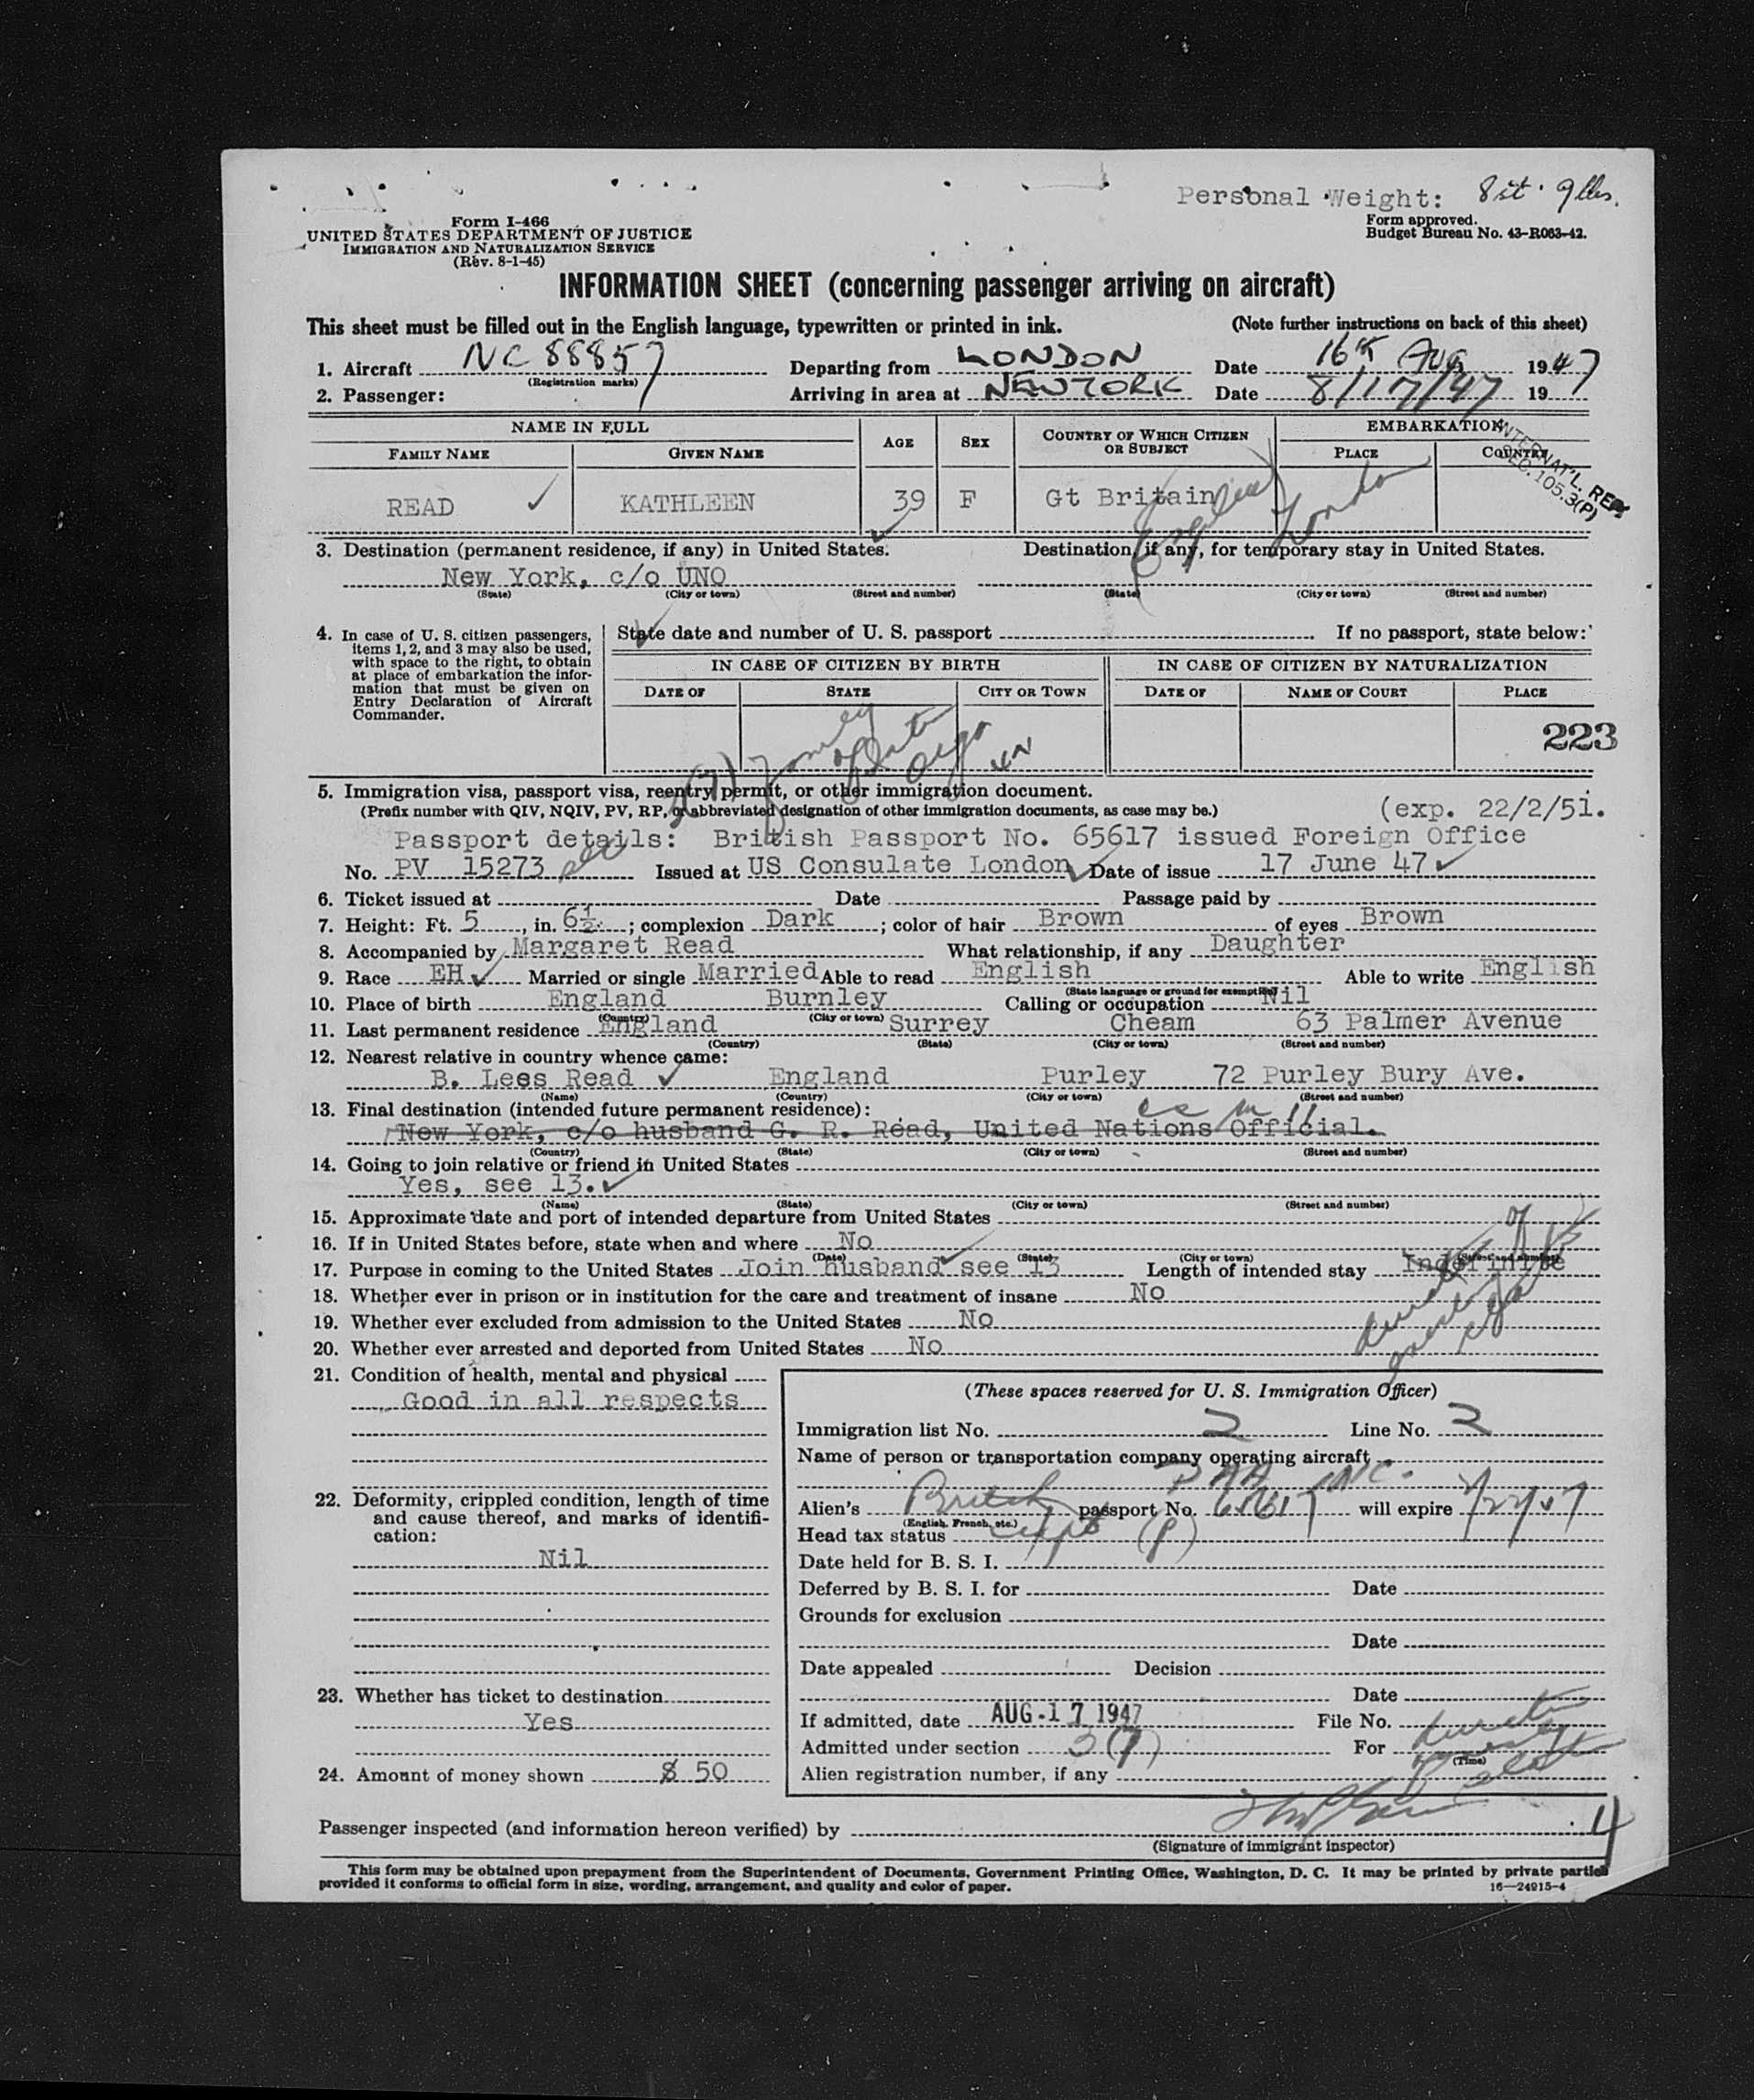 Personal Weight: 8 st. 9 lbs.
Form I-466
UNITED STATES DEPARTMENT OF JUSTICE
IMMIGRATION AND NATURALIZATION SERVICE
(Rev. 8-1-45)
Form approved.
Budget Bureau No. 43-R063-42.
INFORMATION SHEET (concerning passenger arriving on aircraft)
This sheet must be filled out in the English language, typewritten or printed in ink. (Note further instructions on back of this sheet)
1. Aircraft NC 88857 Departing from LONDON Date 16th Aug 1947
(Registration marks)
2. Passenger: Arriving in area at NEW YORK Date 8/17/47 19
NAME IN FULL AGE SEX COUNTRY OF WHICH CITIZEN OR SUBJECT EMBARKATION
FAMILY NAME GIVEN NAME PLACE COUNTRY
INTERNAT'L. REG.
SEC. 105.3(P)
READ KATHLEEN 39 F Gt Britain London
3. Destination (permanent residence, if any) in United States. Destination, if any, for temporary stay in United States.
New York, c/o UNO
(State) (City or town) (Street and number) (State) (City or town) (Street and number)
4. In case of U. S. citizen passengers, items 1, 2, and 3 may also be used, with space to the right, to obtain at place of embarkation the information that must be given on Entry Declaration of Aircraft Commander.
State date and number of U. S. passport If no passport, state below:
IN CASE OF CITIZEN BY BIRTH IN CASE OF CITIZEN BY NATURALIZATION
DATE OF STATE CITY OR TOWN DATE OF NAME OF COURT PLACE
223
5. Immigration visa, passport visa, reentry permit, or other immigration document.
(Prefix number with QIV, NQIV, PV, RP, or abbreviated designation of other immigration documents, as case may be.) (exp. 22/2/51.
Passport details: British Passport No. 65617 issued Foreign Office
No. PV 15273 Issued at US Consulate London Date of issue 17 June 47
6. Ticket issued at Date Passage paid by
7. Height: Ft. 5, in. 6½; complexion Dark; color of hair Brown of eyes Brown
8. Accompanied by Margaret Read What relationship, if any Daughter
9. Race EH Married or single Married Able to read English Able to write English
(State language or ground for exemption)
10. Place of birth England Burnley Calling or occupation Nil
(Country) (City or town)
11. Last permanent residence England Surrey Cheam 63 Palmer Avenue
(Country) (State) (City or town) (Street and number)
12. Nearest relative in country whence came:
B. Lees Read England Purley 72 Purley Bury Ave.
(Name) (Country) (City or town) (Street and number)
13. Final destination (intended future permanent residence):
New York, c/o husband G. R. Read, United Nations Official.
(Country) (State) (City or town) (Street and number)
14. Going to join relative or friend in United States
Yes, see 13.
(Name) (State) (City or town) (Street and number)
15. Approximate date and port of intended departure from United States
16. If in United States before, state when and where No
(Date) (State) (City or town) (Street and number)
17. Purpose in coming to the United States Join husband see 13 Length of intended stay Indefinite
18. Whether ever in prison or in institution for the care and treatment of insane No
19. Whether ever excluded from admission to the United States No
20. Whether ever arrested and deported from United States No
21. Condition of health, mental and physical
Good in all respects
22. Deformity, crippled condition, length of time and cause thereof, and marks of identification:
Nil
23. Whether has ticket to destination
Yes
24. Amount of money shown $ 50
(These spaces reserved for U. S. Immigration Officer)
Immigration list No. 2 Line No. 2
Name of person or transportation company operating aircraft
PAA INC.
Alien's British passport No. 65617 will expire
(English, French, etc.)
Head tax status (P)
Date held for B. S. I.
Deferred by B. S. I. for Date
Grounds for exclusion
Date
Date appealed Decision
Date
If admitted, date AUG 17 1947 File No.
Admitted under section 3(7) For
(Time)
Alien registration number, if any
Passenger inspected (and information hereon verified) by
4
(Signature of immigrant inspector)
This form may be obtained upon prepayment from the Superintendent of Documents, Government Printing Office, Washington, D. C. It may be printed by private parties
provided it conforms to official form in size, wording, arrangement, and quality and color of paper. 16—24915-4